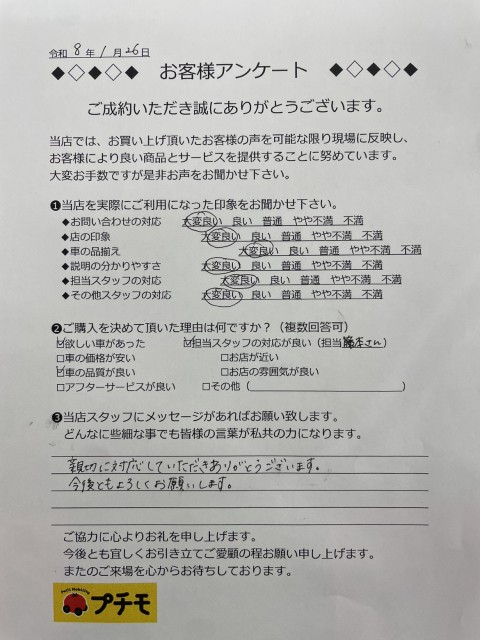 令和 8 年 1 月 26 日
◆◇◆◇◆ お客様アンケート ◆◇◆◇◆
ご成約いただき誠にありがとうございます。
当店では、お買い上げ頂いたお客様の声を可能な限り現場に反映し、
お客様により良い商品とサービスを提供することに努めています。
大変お手数ですが是非お声をお聞かせ下さい。
❶当店を実際にご利用になった印象をお聞かせ下さい。
◆お問い合わせの対応 大変良い 良い 普通 やや不満 不満
◆店の印象 大変良い 良い 普通 やや不満 不満
◆車の品揃え 大変良い 良い 普通 やや不満 不満
◆説明の分かりやすさ 大変良い 良い 普通 やや不満 不満
◆担当スタッフの対応 大変良い 良い 普通 やや不満 不満
◆その他スタッフの対応 大変良い 良い 普通 やや不満 不満
❷ご購入を決めて頂いた理由は何ですか？（複数回答可）
☑欲しい車があった ☑担当スタッフの対応が良い（担当 さん）
□車の価格が安い □お店が近い
☑車の品質が良い □お店の雰囲気が良い
□アフターサービスが良い □その他（ ）
❸当店スタッフにメッセージがあればお願い致します。
どんなに些細な事でも皆様の言葉が私共の力になります。
親切に対応していただきありがとうございます。
今後ともよろしくお願いします。
ご協力に心よりお礼を申し上げます。
今後とも宜しくお引き立てご愛顧の程お願い申し上げます。
またのご来場を心からお待ちしております。
プチモ